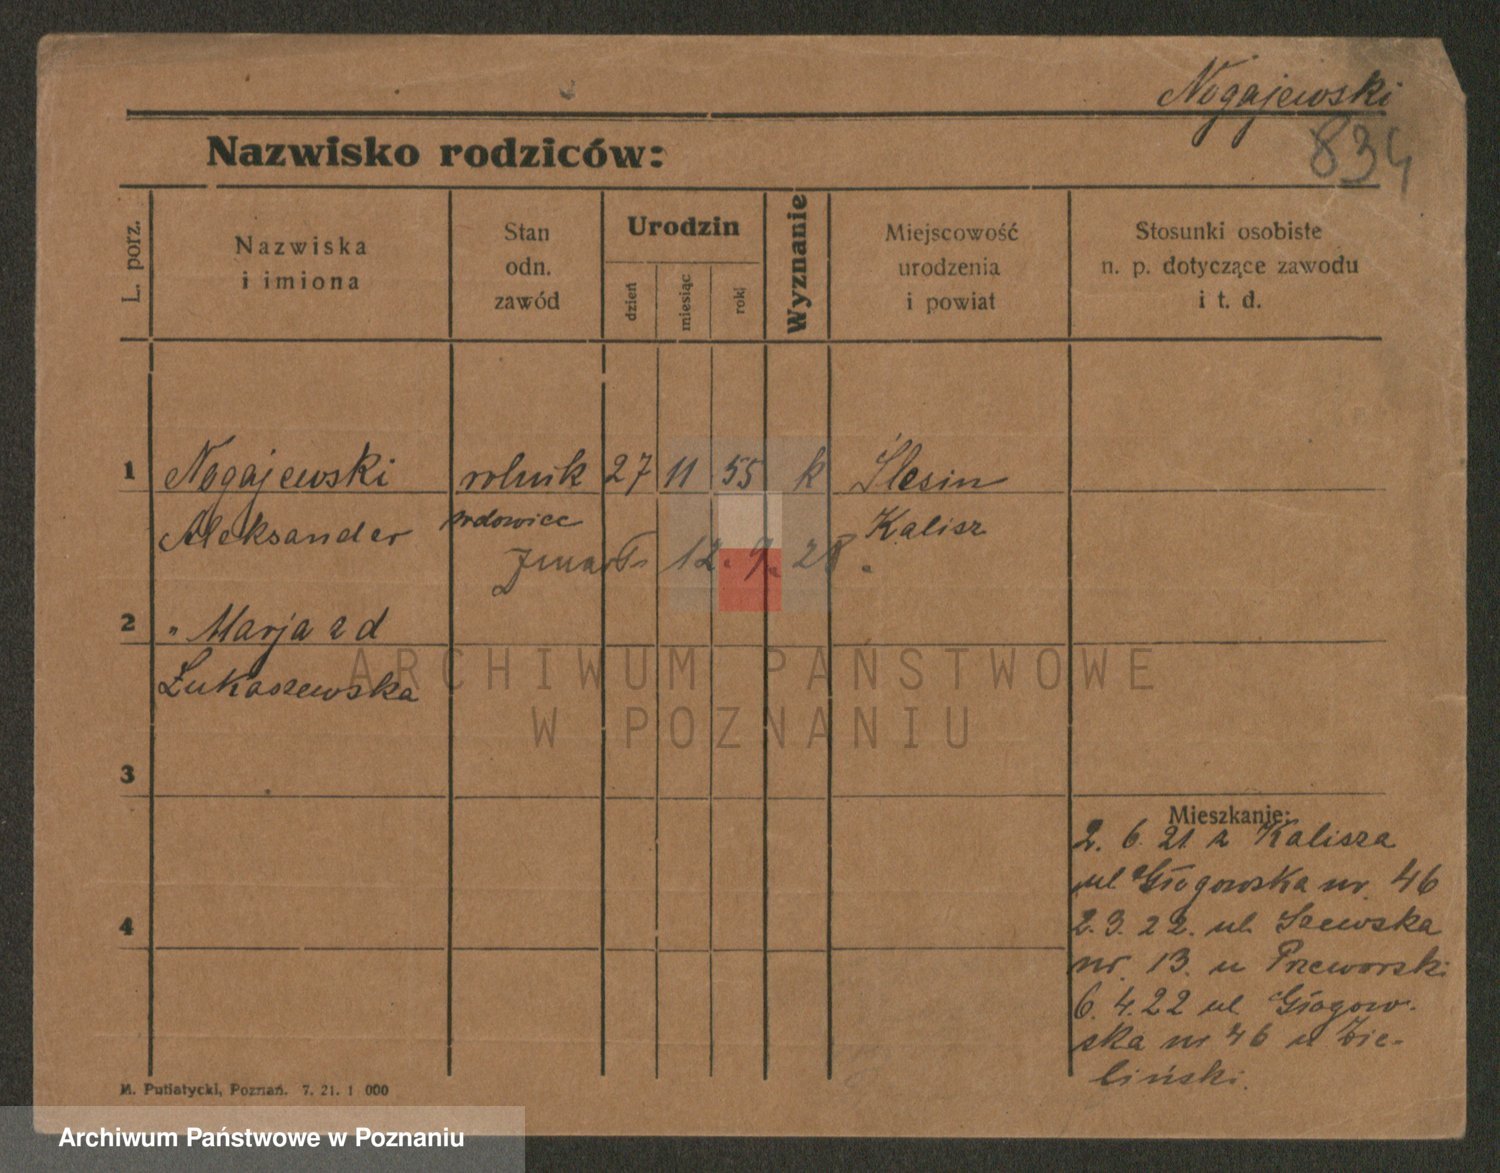 Nogajewski
834
Nazwisko rodziców:
L. porz.
Nazwiska
i imiona
Stan
odn.
zawód
Urodzin
dzień
miesiąc
rok
Wyznanie
Miejscowość
urodzenia
i powiat
Stosunki osobiste
n. p. dotyczące zawodu
i t. d.
1 Nogajewski rolnik 27 11 55 k Ślesin
Aleksander wdowiec Kalisz
Zmarł 12. 9. 28.
2 " Marja z d
Łukaszewska
ARCHIWUM PAŃSTWOWE
W POZNANIU
3
Mieszkanie:
2. 6. 21 z Kalisza
ul Głogowska nr. 46
2. 3. 22. ul. Szewska
nr. 13. u Przeworski
6. 4. 22 ul Głogow-
ska nr 46 u Zie-
liński.
4
M. Putiatycki, Poznań. 7. 21. 1 000
Archiwum Państwowe w Poznaniu